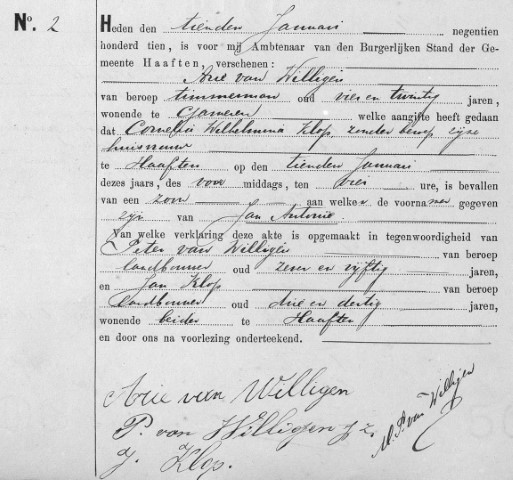 No. 2
Heden den tienden Januari negentien
honderd tien, is voor mij Ambtenaar van den Burgerlijken Stand der Ge-
meente Haaften, verschenen:
Arie van Willigen
van beroep timmerman oud vier en twintig jaren,
wonende te Gameren welke aangifte heeft gedaan
dat Cornelia Wilhelmina Klop zonder beroep zijne
huisvrouw
te Haaften op den tienden Januari
dezes jaars, des voor middags, ten vier ure, is bevallen
van een zoon aan welken de voornamen gegeven
zijn van Jan Antonie
Van welke verklaring deze akte is opgemaakt in tegenwoordigheid van
Peter van Willigen van beroep
landbouwer oud zeven en vijftig jaren,
en Jan Klop van beroep
landbouwer oud drie en dertig jaren,
wonende beiden te Haaften
en door ons na voorlezing onderteekend.
Arie van Willigen
P. van Willigen Jz.
J. Klop.
van Willigen